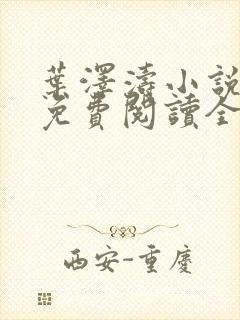 葉澤濤小說
免費閱讀全
西安-重慶